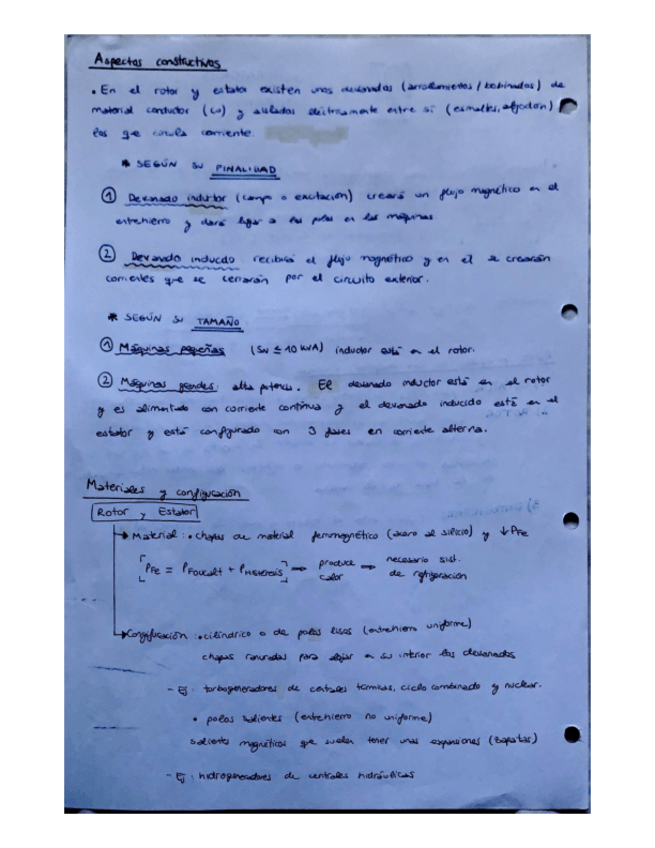 Aspectos constructivos
• En el rotor y estator existen unos devanados (arrollamientos / bobinados) de
material conductor (Cu) y aislados eléctricamente entre sí (esmaltes, algodón)
los que circula corriente.
* SEGÚN SU FINALIDAD
① Devanado inductor (campo o excitación) creará un flujo magnético en el
entrehierro y dará lugar a los polos en las máquinas
② Devanado inducido recibirá el flujo magnético y en él se crearán
corrientes que se cerrarán por el circuito exterior.
* SEGÚN SU TAMAÑO
① Máquinas pequeñas (SN ≤ 10 kVA) inductor está en el rotor.
② Máquinas grandes: alta potencia. El devanado inductor está en el rotor
y es alimentado con corriente continua y el devanado inducido está en el
estator y está configurado con 3 fases en corriente alterna.
Materiales y configuración
Rotor y Estator
→ Material: • chapas de material ferromagnético (acero al silicio) y ↓ PFe
[PFe = PFoucalt + PHistéresis] → produce calor → necesario sist. de refrigeración
→ Configuración: • cilíndrico o de polos lisos (entrehierro uniforme)
chapas ranuradas para alojar en su interior los devanados
- Ej: turbogeneradores de centrales térmicas, ciclo combinado y nuclear.
• polos salientes (entrehierro no uniforme)
salientes magnéticos que suelen tener unas expansiones (zapatas)
- Ej: hidrogeneradores de centrales hidráulicas